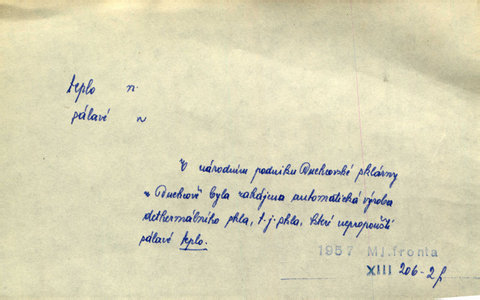 teplo n.
sálavé n
V národním podniku Duchcovské sklárny
v Duchcově byla zahájena automatická výroba
dethermálního skla, t.j. skla, které nepropouští
sálavé teplo.
1957 Ml.fronta
XIII 206-2f